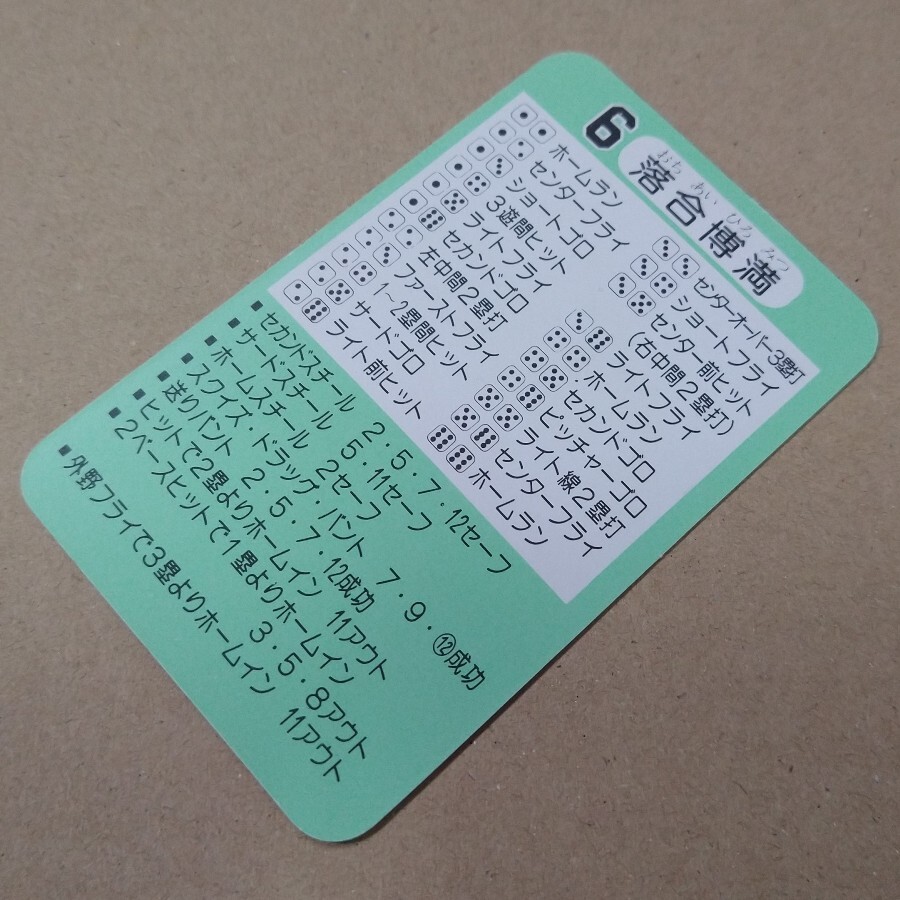 6
おち あい ひろ みつ
落合博満
ホームラン
センターフライ
ショートゴロ
3遊間ヒット
ライトフライ
セカンドゴロ
左中間2塁打
ファーストフライ
1~2塁間ヒット
サードゴロ
ライト前ヒット
センターオーバー3塁打
ショートフライ
センター前ヒット
(右中間2塁打)
ライトフライ
ホームラン
セカンドゴロ
ピッチャーゴロ
ライト線2塁打
センターフライ
ホームラン
■セカンドスチール 2.5.7.12セーフ
■サードスチール 5.11セーフ
■ホームスチール 2セーフ
■スクイズ・ドラッグ・バント 7.9.⑫成功
■送りバント 2.5.7.12成功
■ヒットで2塁よりホームイン 11アウト
■2ベースヒットで1塁よりホームイン 3.5.8アウト
■外野フライで3塁よりホームイン 11アウト